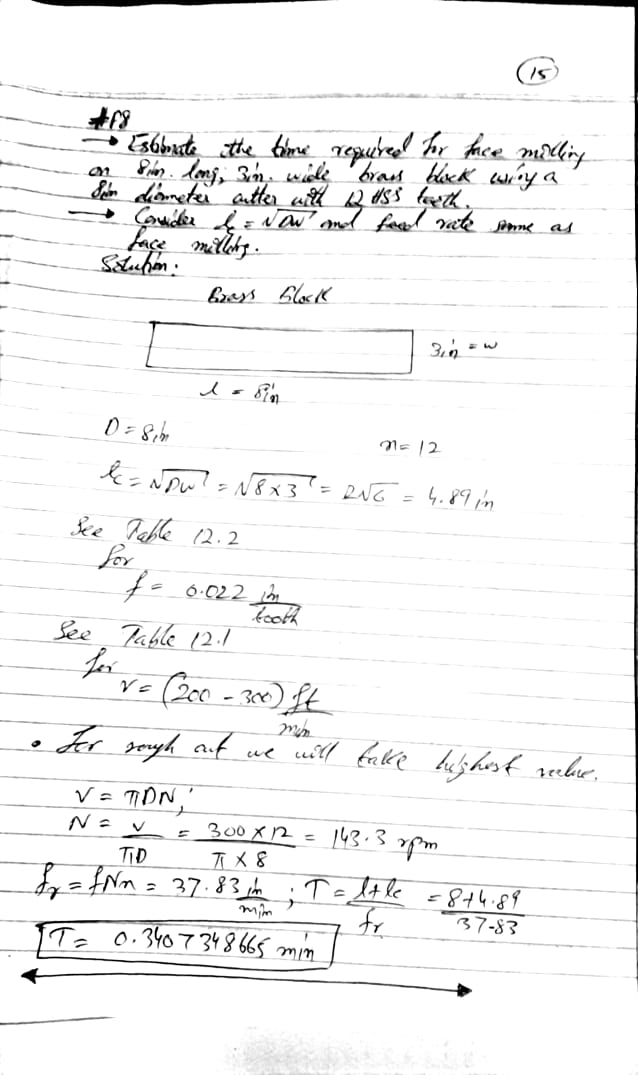 15
#P8
→ Estimate the time required for face milling
an 8in. long, 3in. wide brass block using a
8in diameter cutter with 12 HSS teeth.
→ Consider lc = √DW and feed rate same as
face milling.
Solution:
Brass Block
3in = w
l = 8in
D = 8in
n = 12
lc = √DW = √8×3 = 2√6 = 4.89 in
See Table 12.2
for
f = 0.022 in/tooth
See Table 12.1
for
v = (200 - 300) ft/min
• For rough cut we will take highest value.
V = πDN;
N = V/πD = 300 × 12/π × 8 = 143.3 rpm
fr = fNn = 37.83 in/min ; T = l+lc/fr = 8+4.89/37.83
T = 0.3407348665 min